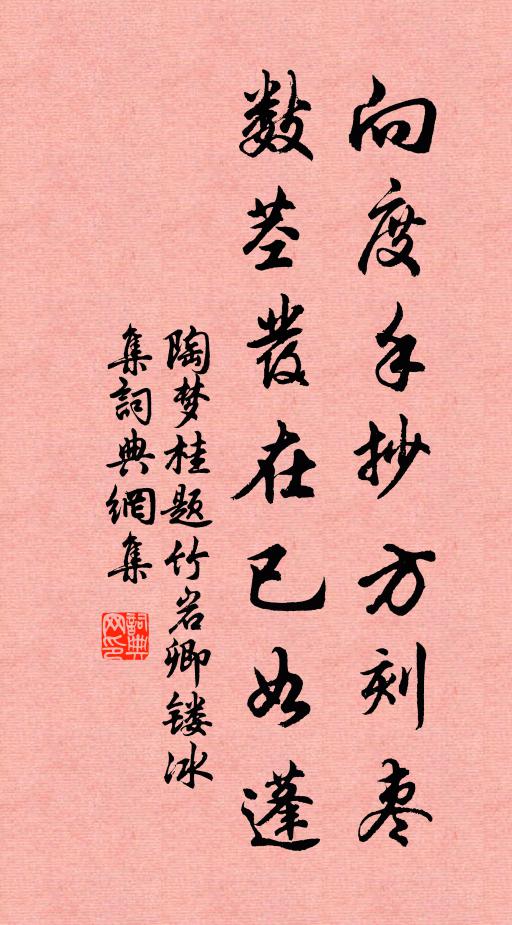 向度手抄方刻枣
数茎发在已如蓬
陶梦桂题竹岩卿镂冰
集詞典網集
詞典网印